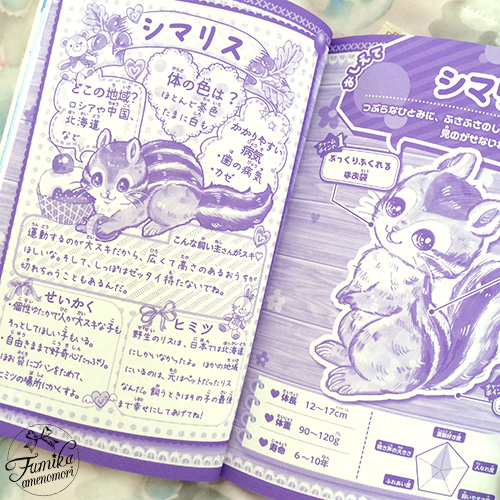 シマリス
どこの地域?
ロシアや中国、
北海道
など
体の色は?
ほとんど茶色
たまに白も
かかりやすい
病気
・歯の病気
・カゼ
運動するのが大スキだから、広くて高さのあるおうちが
ほしいな。そして、しっぽはゼッタイ持たないでね。
切れちゃうこともあるんだ。
こんな飼い主さんがスキ♡
せいかく
・個性ゆたかで人が大スキな子も
そっとしてほしい子もいる。
・自由きままで好奇心たっぷり。
ほお袋にゴハンをためて、
ヒミツの場所にかくすよ。
ヒミツ
野生のリスは、日本では北海道
にしかいなかったよ。ほかの地域
にいるのは、元はペットだったリス
なんだ。飼うときはその子の最後
まで幸せにしてあげてね!
おしえて
シマリ
つぶらなひとみに、ふさふさの
見のがせない
チャームポイント
1
ぷっくりふくれる
ほお袋
♥体長 12～17cm
♥体重 90～120g
♥寿命 6～10年
Fumika
amenomori